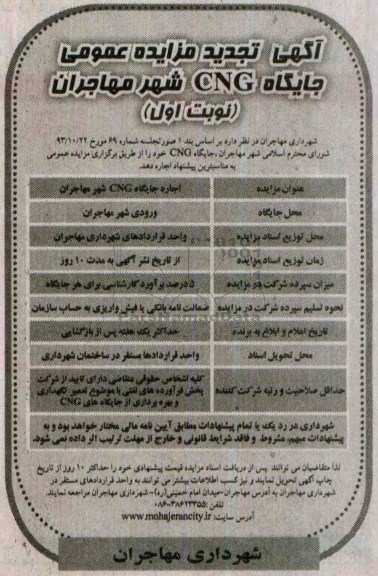 آگهی تجدید مزایده عمومی
جایگاه CNG شهر مهاجران
(نوبت اول)
شهرداری مهاجران در نظر دارد بر اساس بند ۱ صورتجلسه شماره ۶۹ مورخ ۹۳/۱۰/۲۲
شورای محترم اسلامی شهر مهاجران ،جایگاه CNG خود را از طریق برگزاری مزایده عمومی
به مناسبترین پیشنهاد اجاره دهد.
عنوان مزایده اجاره جایگاه CNG شهر مهاجران
محل جایگاه ورودی شهر مهاجران
محل توزیع اسناد مزایده واحد قراردادهای شهرداری مهاجران
زمان توزیع اسناد مزایده از تاریخ نشر آگهی به مدت ۱۰ روز
میزان سپرده شرکت در مزایده ۵درصد برآورد کارشناسی برای هر جایگاه
نحوه تسلیم سپرده شرکت در مزایده ضمانت نامه بانکی یا فیش واریزی به حساب سازمان
تاریخ اعلام و ابلاغ به برنده حداکثر یک هفته پس از بازگشایی
محل تحویل اسناد واحد قراردادها مستقر در ساختمان شهرداری
حداقل صلاحیت و رتبه شرکت کننده کلیه اشخاص حقوقی متقاضی دارای تایید از شرکت
پخش فرآورده های نفتی با موضوع تعمیر، نگهداری
و بهره برداری از جایگاه های CNG
شهرداری در رد یک یا تمام پیشنهادات مطابق آیین نامه مالی مختار خواهد بود و به
پیشنهادات مبهم، مشروط و فاقد شرایط قانونی و خارج از مهلت ترتیب اثر داده نمی شود.
لذا متقاضیان می توانند پس از دریافت اسناد مزایده قیمت پیشنهادی خود را حداکثر ۱۰ روز از تاریخ
چاپ آگهی تحویل نمایند و نیز کسب اطلاعات بیشتر می توانند به واحد قراردادهای مستقر در
شهرداری مهاجران به آدرس مهاجران-میدان امام خمینی(ره)- شهرداری مهاجران مراجعه نمایند.
تلفن :۰۸۶-۳۸۶۲۳۳۵۵
آدرس سایت: www.mohajerancity.ir
شهرداری مهاجران